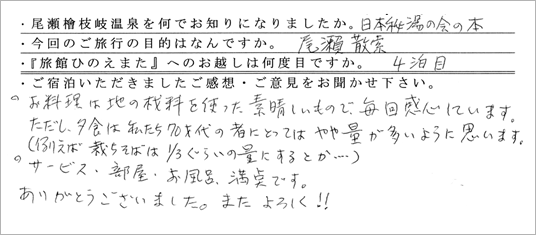 ・尾瀬檜枝岐温泉を何でお知りになりましたか。日本秘湯の会の本
・今回のご旅行の目的はなんですか。 尾瀬散索
・『旅館ひのえまた』へのお越しは何度目ですか。 4泊目
・ご宿泊いただきましたご感想・ご意見をお聞かせ下さい。
○お料理は地の材料を使った素晴しいもので、毎回感心しています。
ただし、夕食は私たち70才代の者にとってはやや量が多いように思います。
(例えば 裁ちそばは 1/3ぐらいの量にするとか…)
○サービス・部屋・お風呂、満点です。
ありがとうございました。またよろしく!!